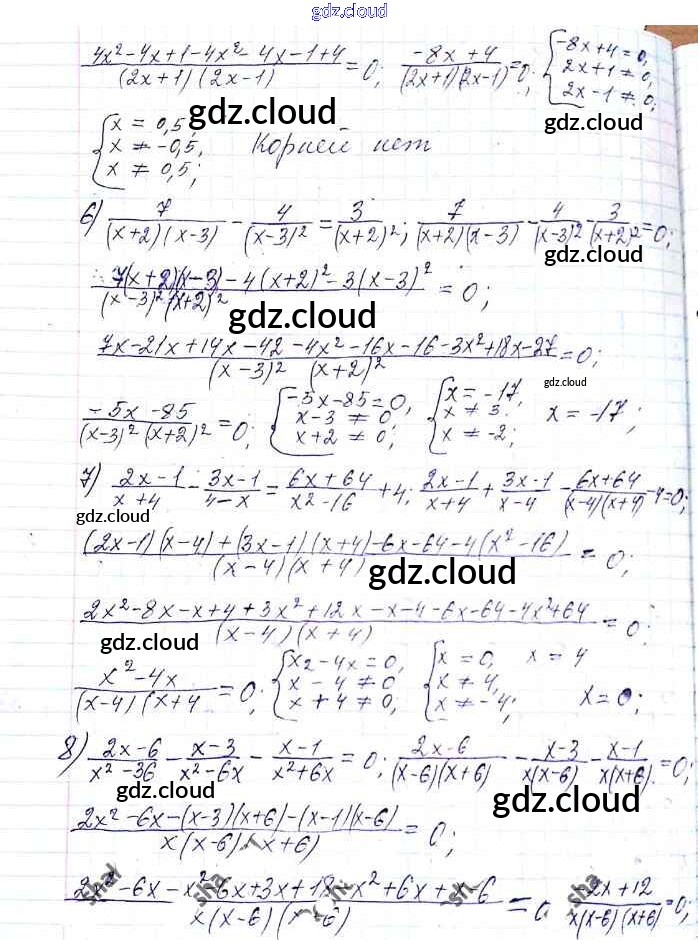 gdz.cloud
(4x² - 4x + 1 - 4x² - 4x - 1 + 4)/((2x+1)(2x-1)) = 0; (-8x + 4)/((2x+1)(2x-1)) = 0; { -8x + 4 = 0, 2x + 1 ≠ 0, 2x - 1 ≠ 0;
gdz.cloud
gdz.cloud
{ x = 0,5, x ≠ -0,5, x ≠ 0,5; Корней нет
6) 7/((x+2)(x-3)) - 4/(x-3)² = 3/(x+2)²; 7/((x+2)(x-3)) - 4/(x-3)² - 3/(x+2)² = 0;
gdz.cloud
(7(x+2)(x-3) - 4(x+2)² - 3(x-3)²)/((x-3)²(x+2)²) = 0;
gdz.cloud
(7x - 21x + 14x - 42 - 4x² - 16x - 16 - 3x² + 18x - 27)/((x-3)² (x+2)²) = 0;
gdz.cloud
(-5x - 85)/((x-3)²(x+2)²) = 0; { -5x - 85 = 0, x - 3 ≠ 0, x + 2 ≠ 0; { x = -17, x ≠ 3, x ≠ -2; x = -17;
7) (2x-1)/(x+4) - (3x-1)/(4-x) = (6x+64)/(x²-16) + 4; (2x-1)/(x+4) + (3x-1)/(x-4) - (6x+64)/((x-4)(x+4)) - 4 = 0;
gdz.cloud
((2x-1)(x-4) + (3x-1)(x+4) - 6x - 64 - 4(x² - 16))/((x-4)(x+4)) = 0;
gdz.cloud
(2x² - 8x - x + 4 + 3x² + 12x - x - 4 - 6x - 64 - 4x² + 64)/((x-4)(x+4)) = 0;
gdz.cloud
(x² - 4x)/((x-4)(x+4 = 0; { x2 - 4x = 0, x - 4 ≠ 0, x + 4 ≠ 0; { x = 0, x ≠ 4, x ≠ -4; x = 4
x = 0;
8) (2x-6)/(x²-36) - (x-3)/(x²-6x) - (x-1)/(x²+6x) = 0; (2x-6)/((x-6)(x+6)) - (x-3)/(x(x-6)) - (x-1)/(x(x+6)) = 0;
gdz.cloud
gdz.cloud
(2x² - 6x - (x-3)(x+6) - (x-1)(x-6))/(x(x-6)(x+6)) = 0;
(2x² - 6x - x² - 6x + 3x + 18 - x² + 6x + x - 6)/(x(x-6)(x-6)) = 0 (-2x + 12)/(x(x-6)(x+6)) = 0;